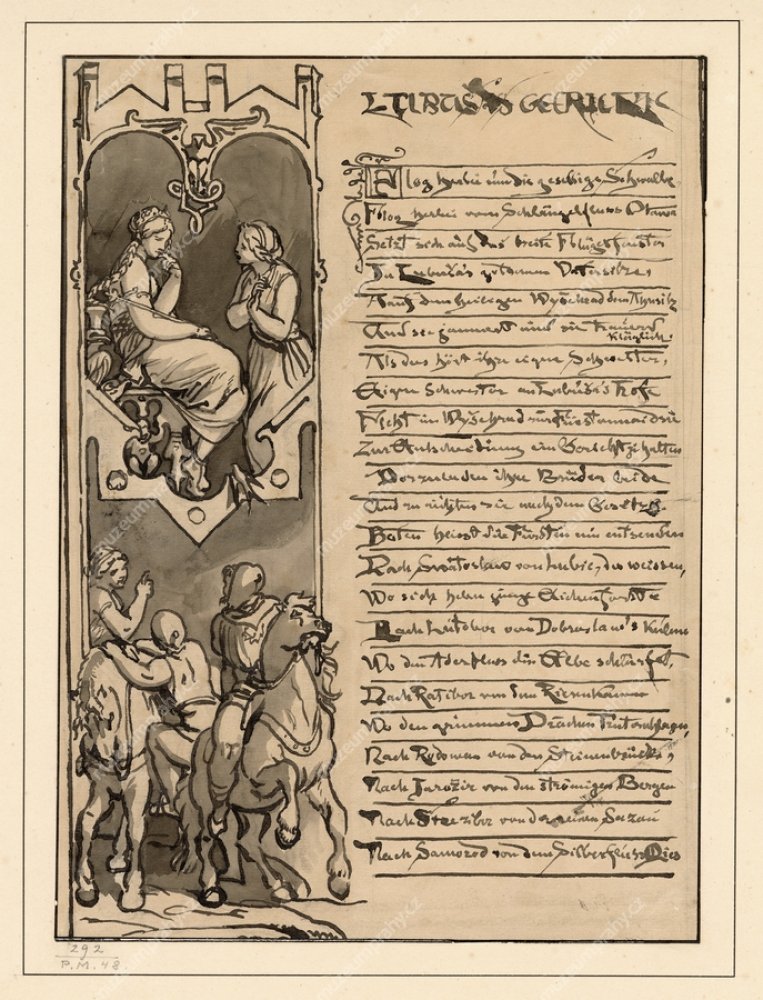 LIBUŠAS GERICHT
Flog herbei nun die geschwätzige Schwalbe
Flog herbei vom Schlängelfluss Otawa
Setzt sich auf das breite Flügelfenster
In Lubuša's goldenem Vatersitze,
Auf dem heiligen Wyšehrad dem Ahnsitz
Und sie jammert und sie trauert
kläglich.
Als das hört ihre eigne Schwester,
Eigne Schwester an Lubuša's Hofe
Fleht im Wyšehrad
Zur Entscheidung ein Gericht zu halten
Vorzuladen ihre Brüder beide
Und zu richten sie nach dem Gesetze.
Boten heisst die Fürstin nun entsenden
Nach Swatoslaw von Lubic, der weissen,
Wo sich heben junge Eichenforste
Nach Lutobor von Dobroslaw's Kulme
Wo den Adlerfluss die Elbe schlürfet,
Nach Ratibor von den Riesenkämmen
Wo den grimmen Drachen Trut erschlagen,
Nach Radowan von der Steinenbrücke,
Nach Jarožir von den strömigen Bergen
Nach Strezibor von der reinen Sazau
Nach Samorod von dem Silberflusse Mies
292
P.M. 48
muzeumprahy.cz